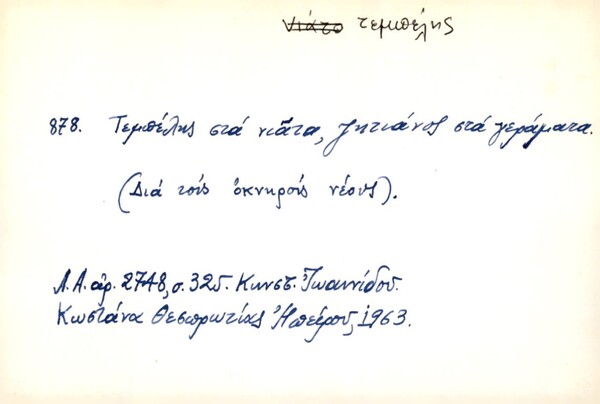 ~~νιάτο~~ τεμπέλης
878. Τεμπέλης στά νιᾶτα, ζητιάνος στά γεράματα.
(Διά τούς ὀκνηρούς νέους).
Λ.Α. ἀρ. 2748, σ. 325. Κωνστ. Ἰωαννίδου.
Κωστάνα Θεσπρωτίας Ἠπείρου, 1963.